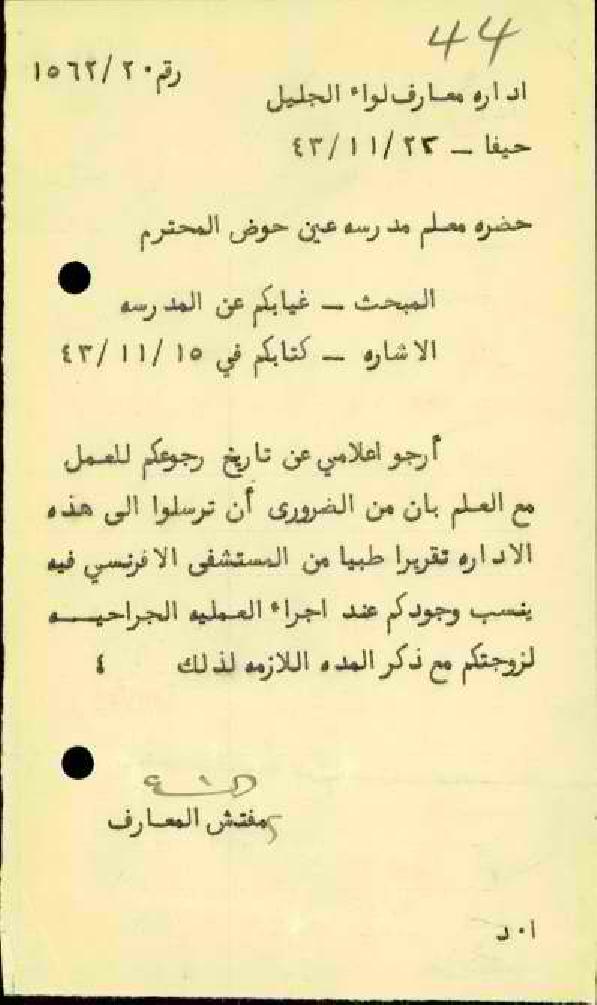 44
رقم ١٥٦٢/٢٠
اداره معارف لواء الجليل
حيفا – ٤٣/١١/٢٣
حضره معلم مدرسه عين حوض المحترم
المبحث – غيابكم عن المدرسه
الاشاره – كتابكم في ٤٣/١١/١٥
أرجو اعلامي عن تاريخ رجوعكم للعمل
مع العلم بان من الضرورى أن ترسلوا الى هذه
الاداره تقريرا طبيا من المستشفى الافرنسي فيه
ينسب وجودكم عند اجراء العمليه الجراحيــه
لزوجتكم مع ذكر المده اللازمه لذلك ٤
مفتش المعارف
ا٠د